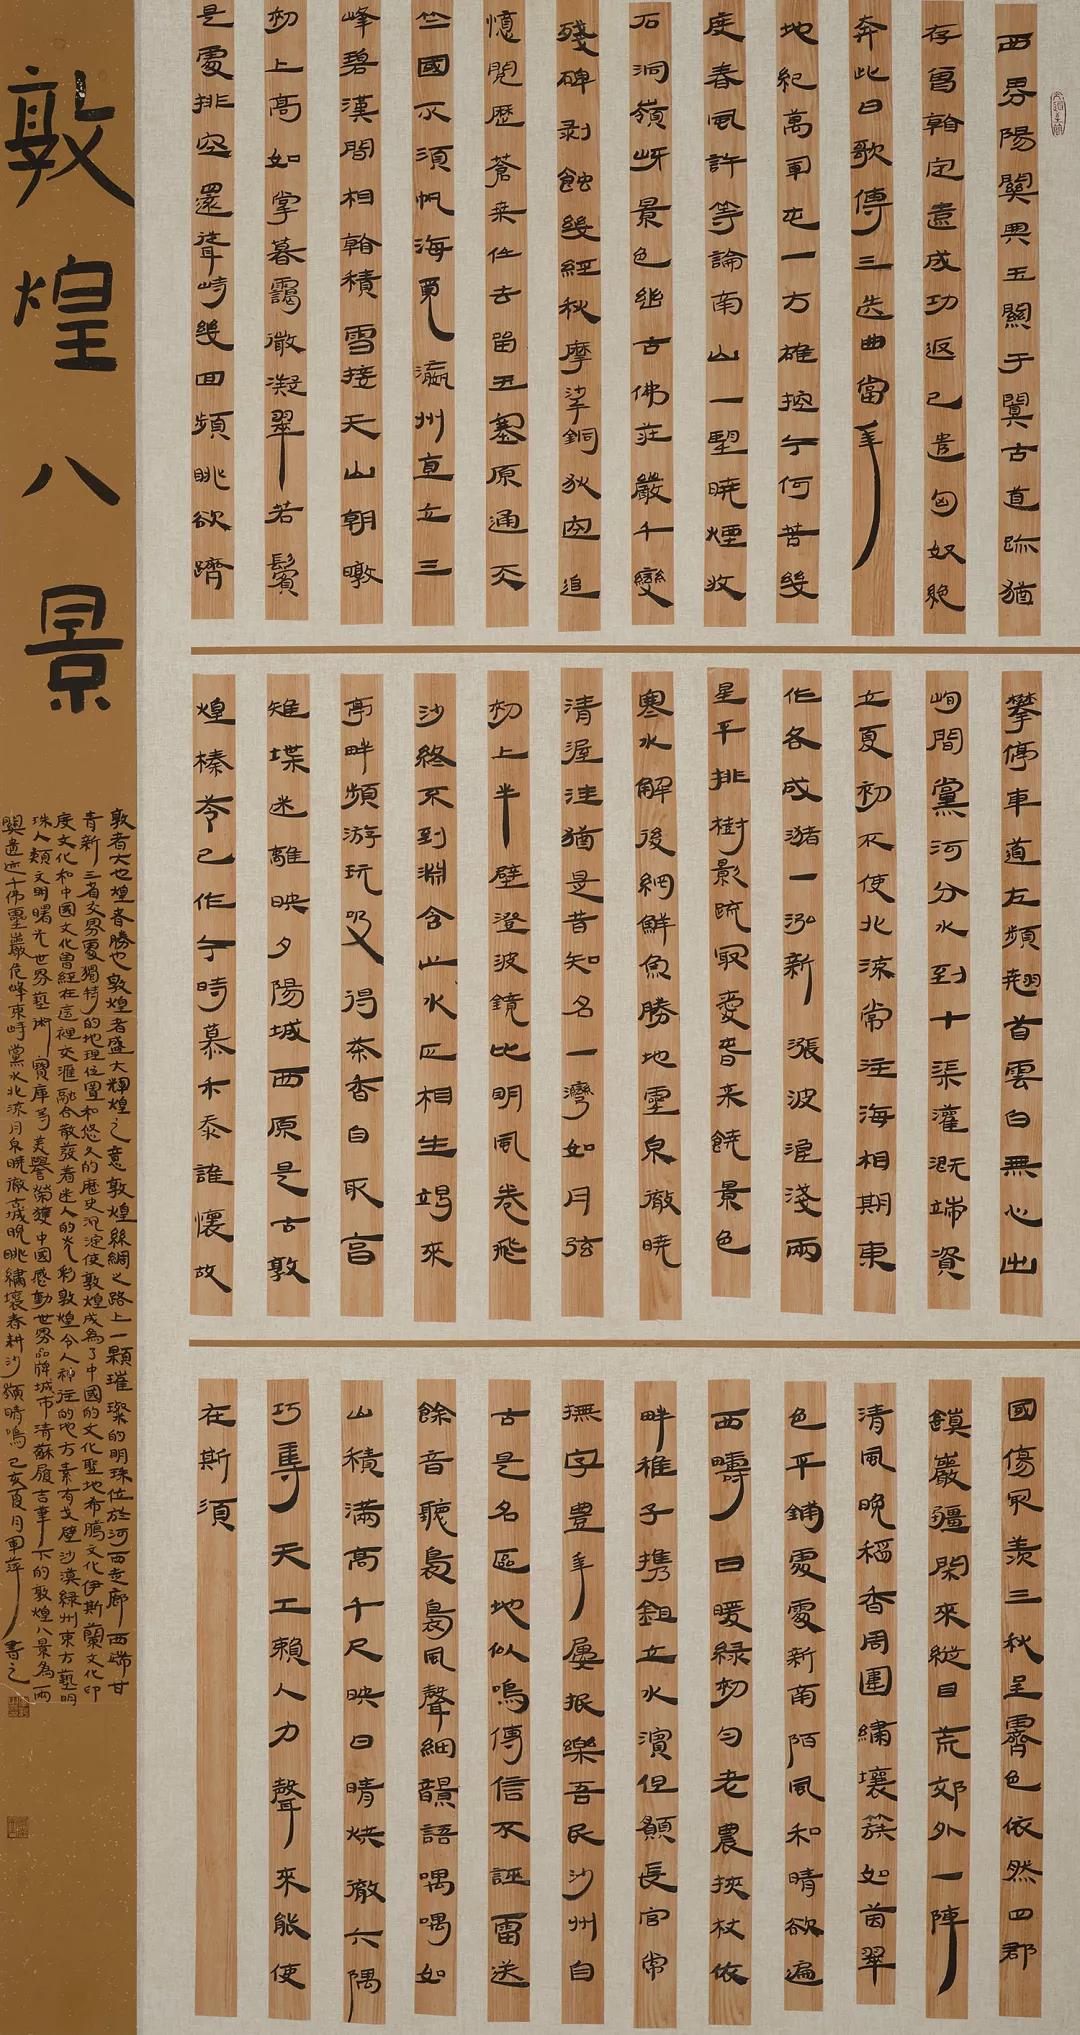 西界陽關與玉關于闐古道跡猶
存曾翰定遠成功返已遣匈奴絶
奔此日歌傳三迭曲當年
地紀萬軍屯一方雄控今何苦幾
度春風許等論南山一望曉煙收
石洞嶺岈景色幽古佛莊嚴千變
殘碑剥蝕幾經秋摩挲銅狄空追
憶閲歷蒼桒任去留五塞原通天
竺國不須帆海覓瀛州直立三
峰碧漢間相翰積雪接天山朝暾
初上高如掌暮靄微凝翠若鬟
是處排空還聳峙幾回頻眺欲躋
攀停車道左頻翹首雲白無心出
峋間黨河分水到十渠灌溉端資
立夏初不使北涼常注海相期東
作各成潴一泓新漲波渲淺兩
星平排樹影疏最愛春来饒景色
寒水解後網鮮魚勝地靈泉徹曉
清渥洼猶是昔知名一灣如月弦
初上半壁澄波鏡比明風卷飛
沙終不到淵含止水正相生竭來
亭畔頻游玩吸得茶香自取亯
雉堞迷離映夕陽城西原是古敦
煌榛苓已作今時慕禾黍誰懷故
國傷最羨三秋呈霽色依然四郡
鎮巖疆閑來縱目荒郊外一陣
清風晚稻香周圍繡壤簇如茵翠
色平鋪處處新南陌風和晴欲遍
西疇日暖緑初匀老農挾杖依
畔稚子攜鉏立水濱但願長官常
撫字豊年屢报樂吾民沙州自
古是名區地似鳴傳信不誣雷送
餘音聽裊裊風聲細韻語喁喁如
山積滿高千尺映日晴烘徹六隅
巧奪天工賴人力聲來能使
在斯須
敦煌八景
敦者大也煌者勝也敦煌者盛大輝煌之意敦煌絲綢之路上一顆璀璨的明珠位於河西走廊西端甘
青新三省交界處獨特的地理位置和悠久的歷史沉淀使敦煌成為了中國的文化聖地希臘文化伊斯蘭文化印
度文化和中國文化曾經在這裡交滙融合散發着迷人的光彩敦煌令人神往的地方素有戈壁沙漠緑州東方藝明
珠人類文明曙光世界藝術寶庫等美譽榮獲中國感動世界品牌城市清蘇履吉筆下的敦煌八景為兩
關遺迹千佛靈巖危峰東峙黨水北流月泉曉徹古城晚眺繡壤春耕沙嶺晴鳴己亥夏月軍萍書之